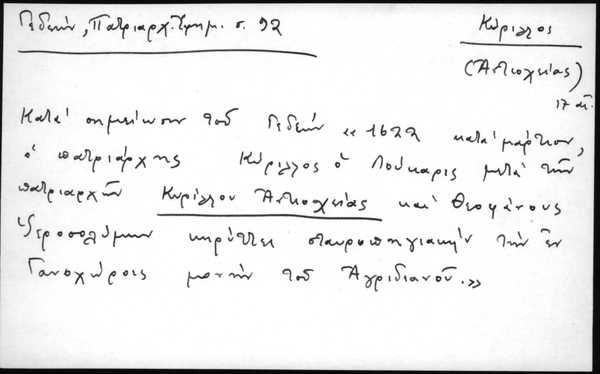 Γεδεών, Πατριαρχ. Ἐφημ. σ. 92
Κύριλλος
(Ἀντιοχείας)
17 αἰ.
Κατά σημείωσιν τοῦ Γεδεών «1622 κατά μάρτιον,
ὁ πατριάρχης Κύριλλος ὁ Λούκαρις μετά τῶν
πατριαρχῶν Κυρίλλου Ἀντιοχείας καί Θεοφάνους
Ἱεροσολύμων κηρύττει σταυροπηγιακήν τήν ἐν
Γανοχώροις μονήν τοῦ Ἀγριδιανοῦ.»